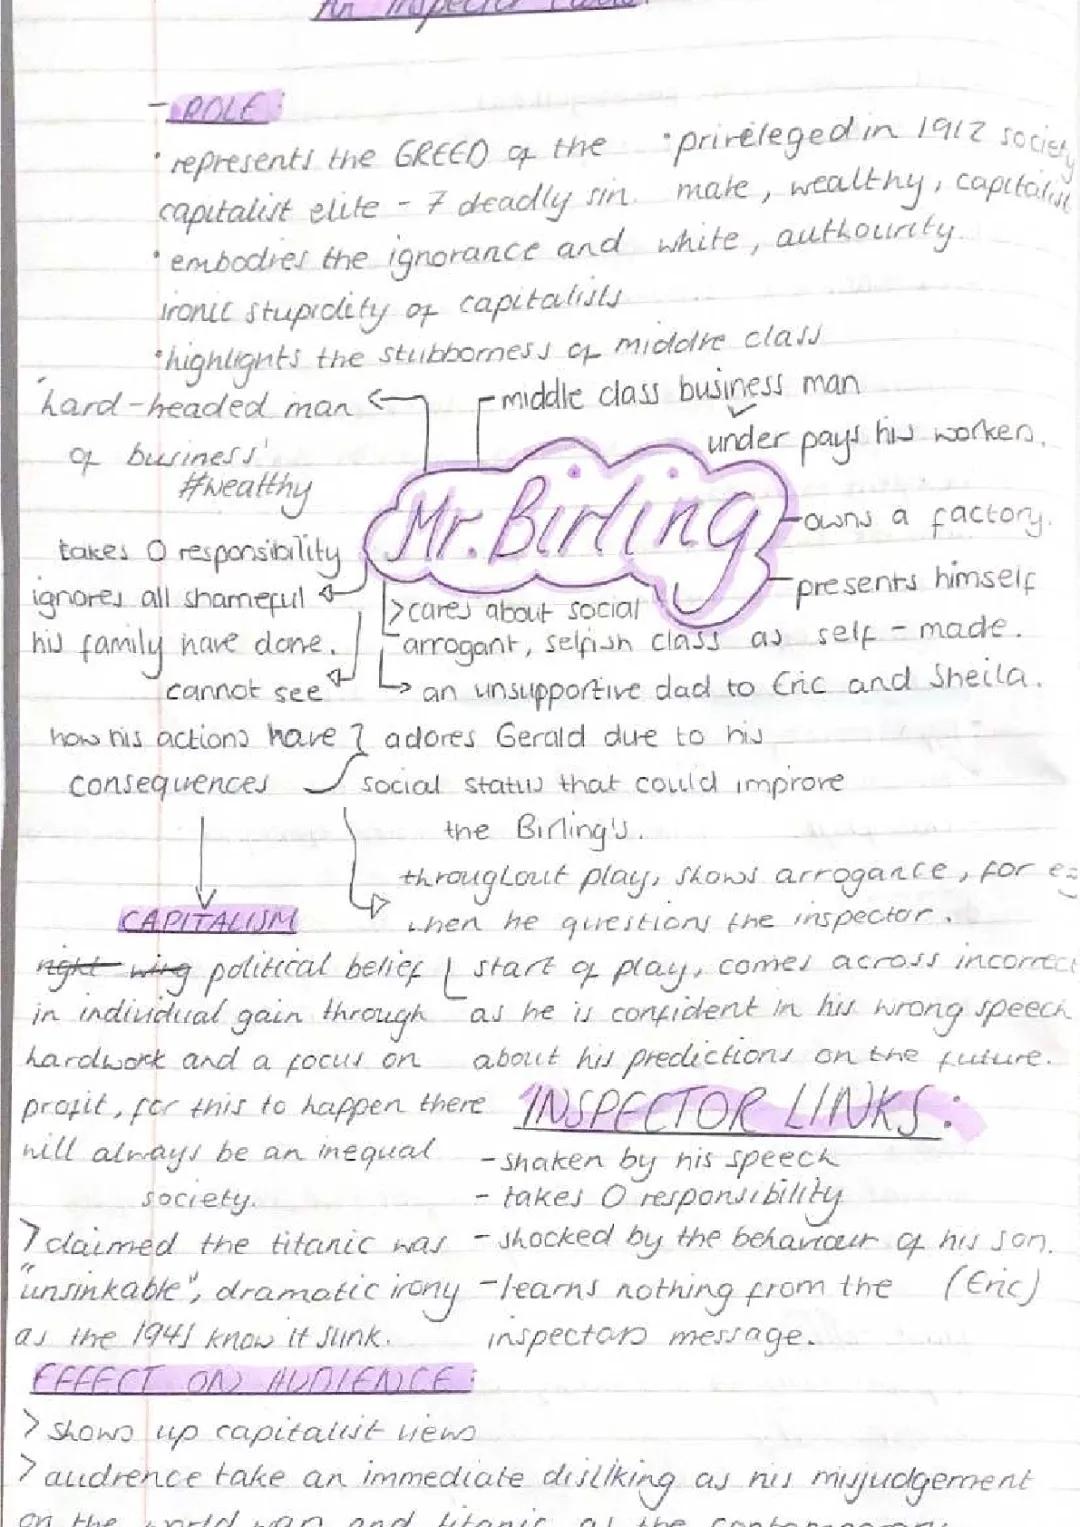 An Inspector Calls.
- ROLE:
• represents the GREED of the
capitalist elite - 7 deadly sin.
• embodies the ignorance and
ironic stupidity of capitalists
• highlights the stubborness of middle class
• prireleged in 1912 society
male, wealthy, capitalist
white, authourity.
'hard-headed man
of business'
#wealthy
- middle class business man
under pays his workers.
Mr. Birling
- owns a factory.
- presents himself
as self - made.
takes 0 responsibility
ignores all shameful
his family have done.
cannot see
how his actions have
consequences
> cares about social
class
arrogant, selfish
an unsupportive dad to Eric and Sheila.
adores Gerald due to his
social status that could improve
the Birling's.
throughout play, shows arrogance, for eg
when he questions the inspector.
start of play, comes across incorrect
as he is confident in his wrong speech
about his predictions on the future.
CAPITALISM
right wing political belief
in individual gain through
hardwork and a focus on
profit, for this to happen there
will always be an inequal
society.
> claimed the titanic was
"unsinkable", dramatic irony
as the 1945 know it sunk.
INSPECTOR LINKS:
- shaken by his speech
- takes 0 responsibility
- shocked by the behaviour of his son.
(Eric)
- learns nothing from the
inspectors message.
EFFECT ON AUDIENCE:
> shows up capitalist views
> audience take an immediate disliking as his misjudgement
on the world war and titanic as the contemporary